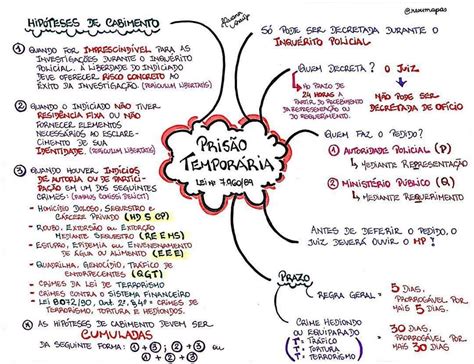 HIPÓTESES DE CABIMENTO
① QUANDO FOR IMPRESCINDÍVEL PARA AS
INVESTIGAÇÕES DURANTE O INQUÉRITO
POLICIAL. A LIBERDADE DO INDICIADO
DEVE OFERECER RISCO CONCRETO AO
ÊXITO DA INVESTIGAÇÃO. (PERICULUM LIBERTATIS)
② QUANDO O INDICIADO NÃO TIVER
RESIDÊNCIA FIXA OU NÃO
FORNECER ELEMENTOS
NECESSÁRIOS AO ESCLARE-
CIMENTO DE SUA
IDENTIDADE. (PERICULUM LIBERTATIS)
③ QUANDO HOUVER INDÍCIOS
DE AUTORIA OU DE PARTICI-
PAÇÃO EM UM DOS SEGUINTES
CRIMES: (FUMUS COMISSI DELICTI)
- HOMICÍDIO DOLOSO, SEQUESTRO E
CÁRCERE PRIVADO (HD S CP)
- ROUBO, EXTORSÃO OU EXTORSÃO
MEDIANTE SEQUESTRO (RE EMS)
- ESTUPRO, EPIDEMIA OU ENVENENAMENTO
DE ÁGUA OU ALIMENTO (EEE)
- QUADRILHA, GENOCÍDIO, TRÁFICO DE
ENTORPECENTES (QGT)
- CRIMES DA LEI DE TERRORISMO
- CRIMES CONTRA O SISTEMA FINANCEIRO
- LEI 8072/90, ART. 2º, § 4º = CRIMES DE
TERRORISMO, TORTURA E HEDIONDOS.
AS HIPÓTESES DE CABIMENTO DEVEM SER
CUMULADAS
DA SEGUINTE FORMA: ①+③; ②+③ OU
①+②+③
PRISÃO
TEMPORÁRIA
LEI Nº 7.960/89
SÓ PODE SER DECRETADA DURANTE O
INQUÉRITO POLICIAL
QUEM DECRETA? O JUIZ
NO PRAZO DE
24 HORAS A
PARTIR DO RECEBIMENTO
DA REPRESENTAÇÃO OU
DO REQUERIMENTO.
NÃO PODE SER
DECRETADA DE OFÍCIO
QUEM FAZ O PEDIDO?
① AUTORIDADE POLICIAL (P)
↳ MEDIANTE REPRESENTAÇÃO
② MINISTÉRIO PÚBLICO (Q)
↳ MEDIANTE REQUERIMENTO
ANTES DE DEFERIR O PEDIDO, O
JUIZ DEVERÁ OUVIR O MP!
PRAZO
REGRA GERAL =
5 DIAS,
PRORROGÁVEL POR
MAIS 5 DIAS.
CRIME HEDIONDO
OU EQUIPARADO
(T - TRÁFICO
T - TORTURA
T - TERRORISMO)
=
30 DIAS,
PRORROGÁVEL POR
MAIS 30 DIAS